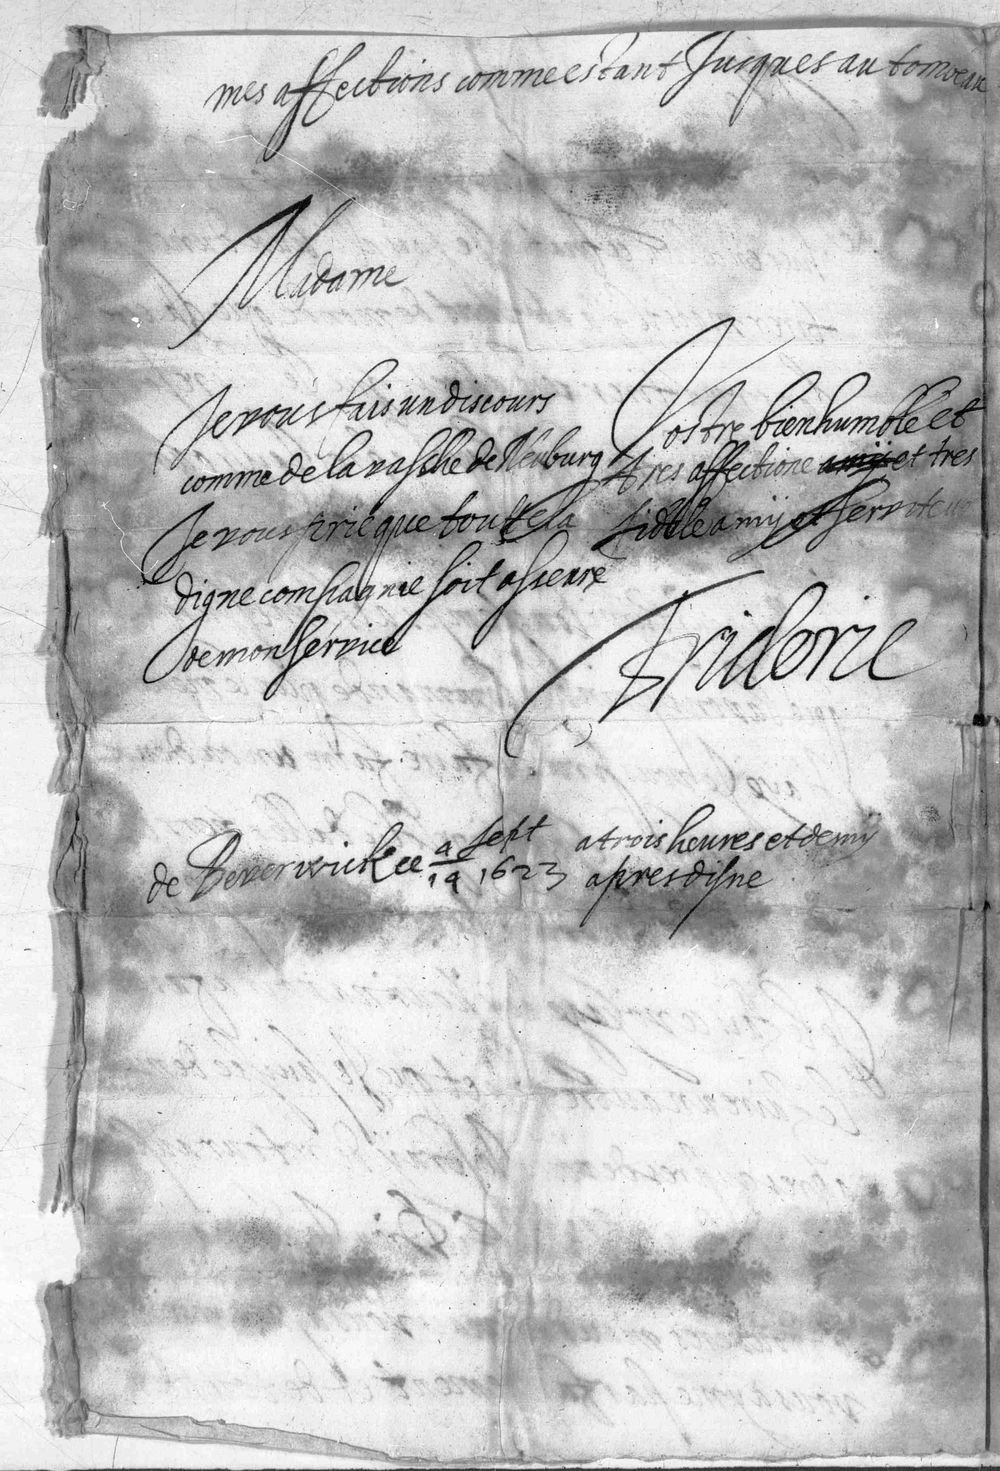 mes affections comme estant Jusques au tombeau
Madame
Je vous fais un discours
comme de la vasshe de Neuburg
Je vous prie que toutte la
digne compagnie soit asseuré
de mon service
Vostre bien humble et
tres affectione amÿ et tres
fidelle amÿ et serviteur
Frideric
de Beverwick ce 9/19 sept 1623
a trois heures et demÿ
apres disne